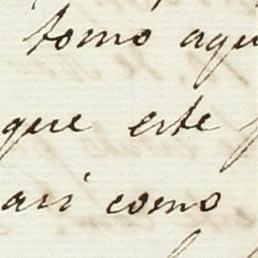 tomó aqu
que este
asi como